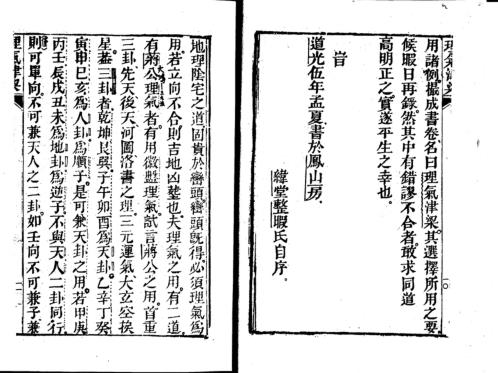 用諸例攝成書卷名曰理氣津梁其選擇所用之要
候暇日再錄然其中有錯謬不合者敢求同道
高明正之實遂平生之幸也
旹
道光伍年孟夏書於鳳山房
緯堂整暇氏自序
地理陰宅之道固貴於巒頭巒頭旣得必須理氣爲
用若立向不合則吉地凶塟也夫理氣之用有二道
有蔣公理氣者有用徽盤理氣試言蔣公之用首重
三卦先天後天河圖洛書之理三元運氣大玄空挨
星葢三卦者乾坤艮巽子午卯酉爲天卦乙辛丁癸
寅申巳亥爲人卦爲順子是可兼天卦之用若甲庚
丙壬辰戌丑未爲地卦爲逆子不與天人二卦同行
則可單向不可兼天人之二卦如壬向不可兼子兼
理氣津梁